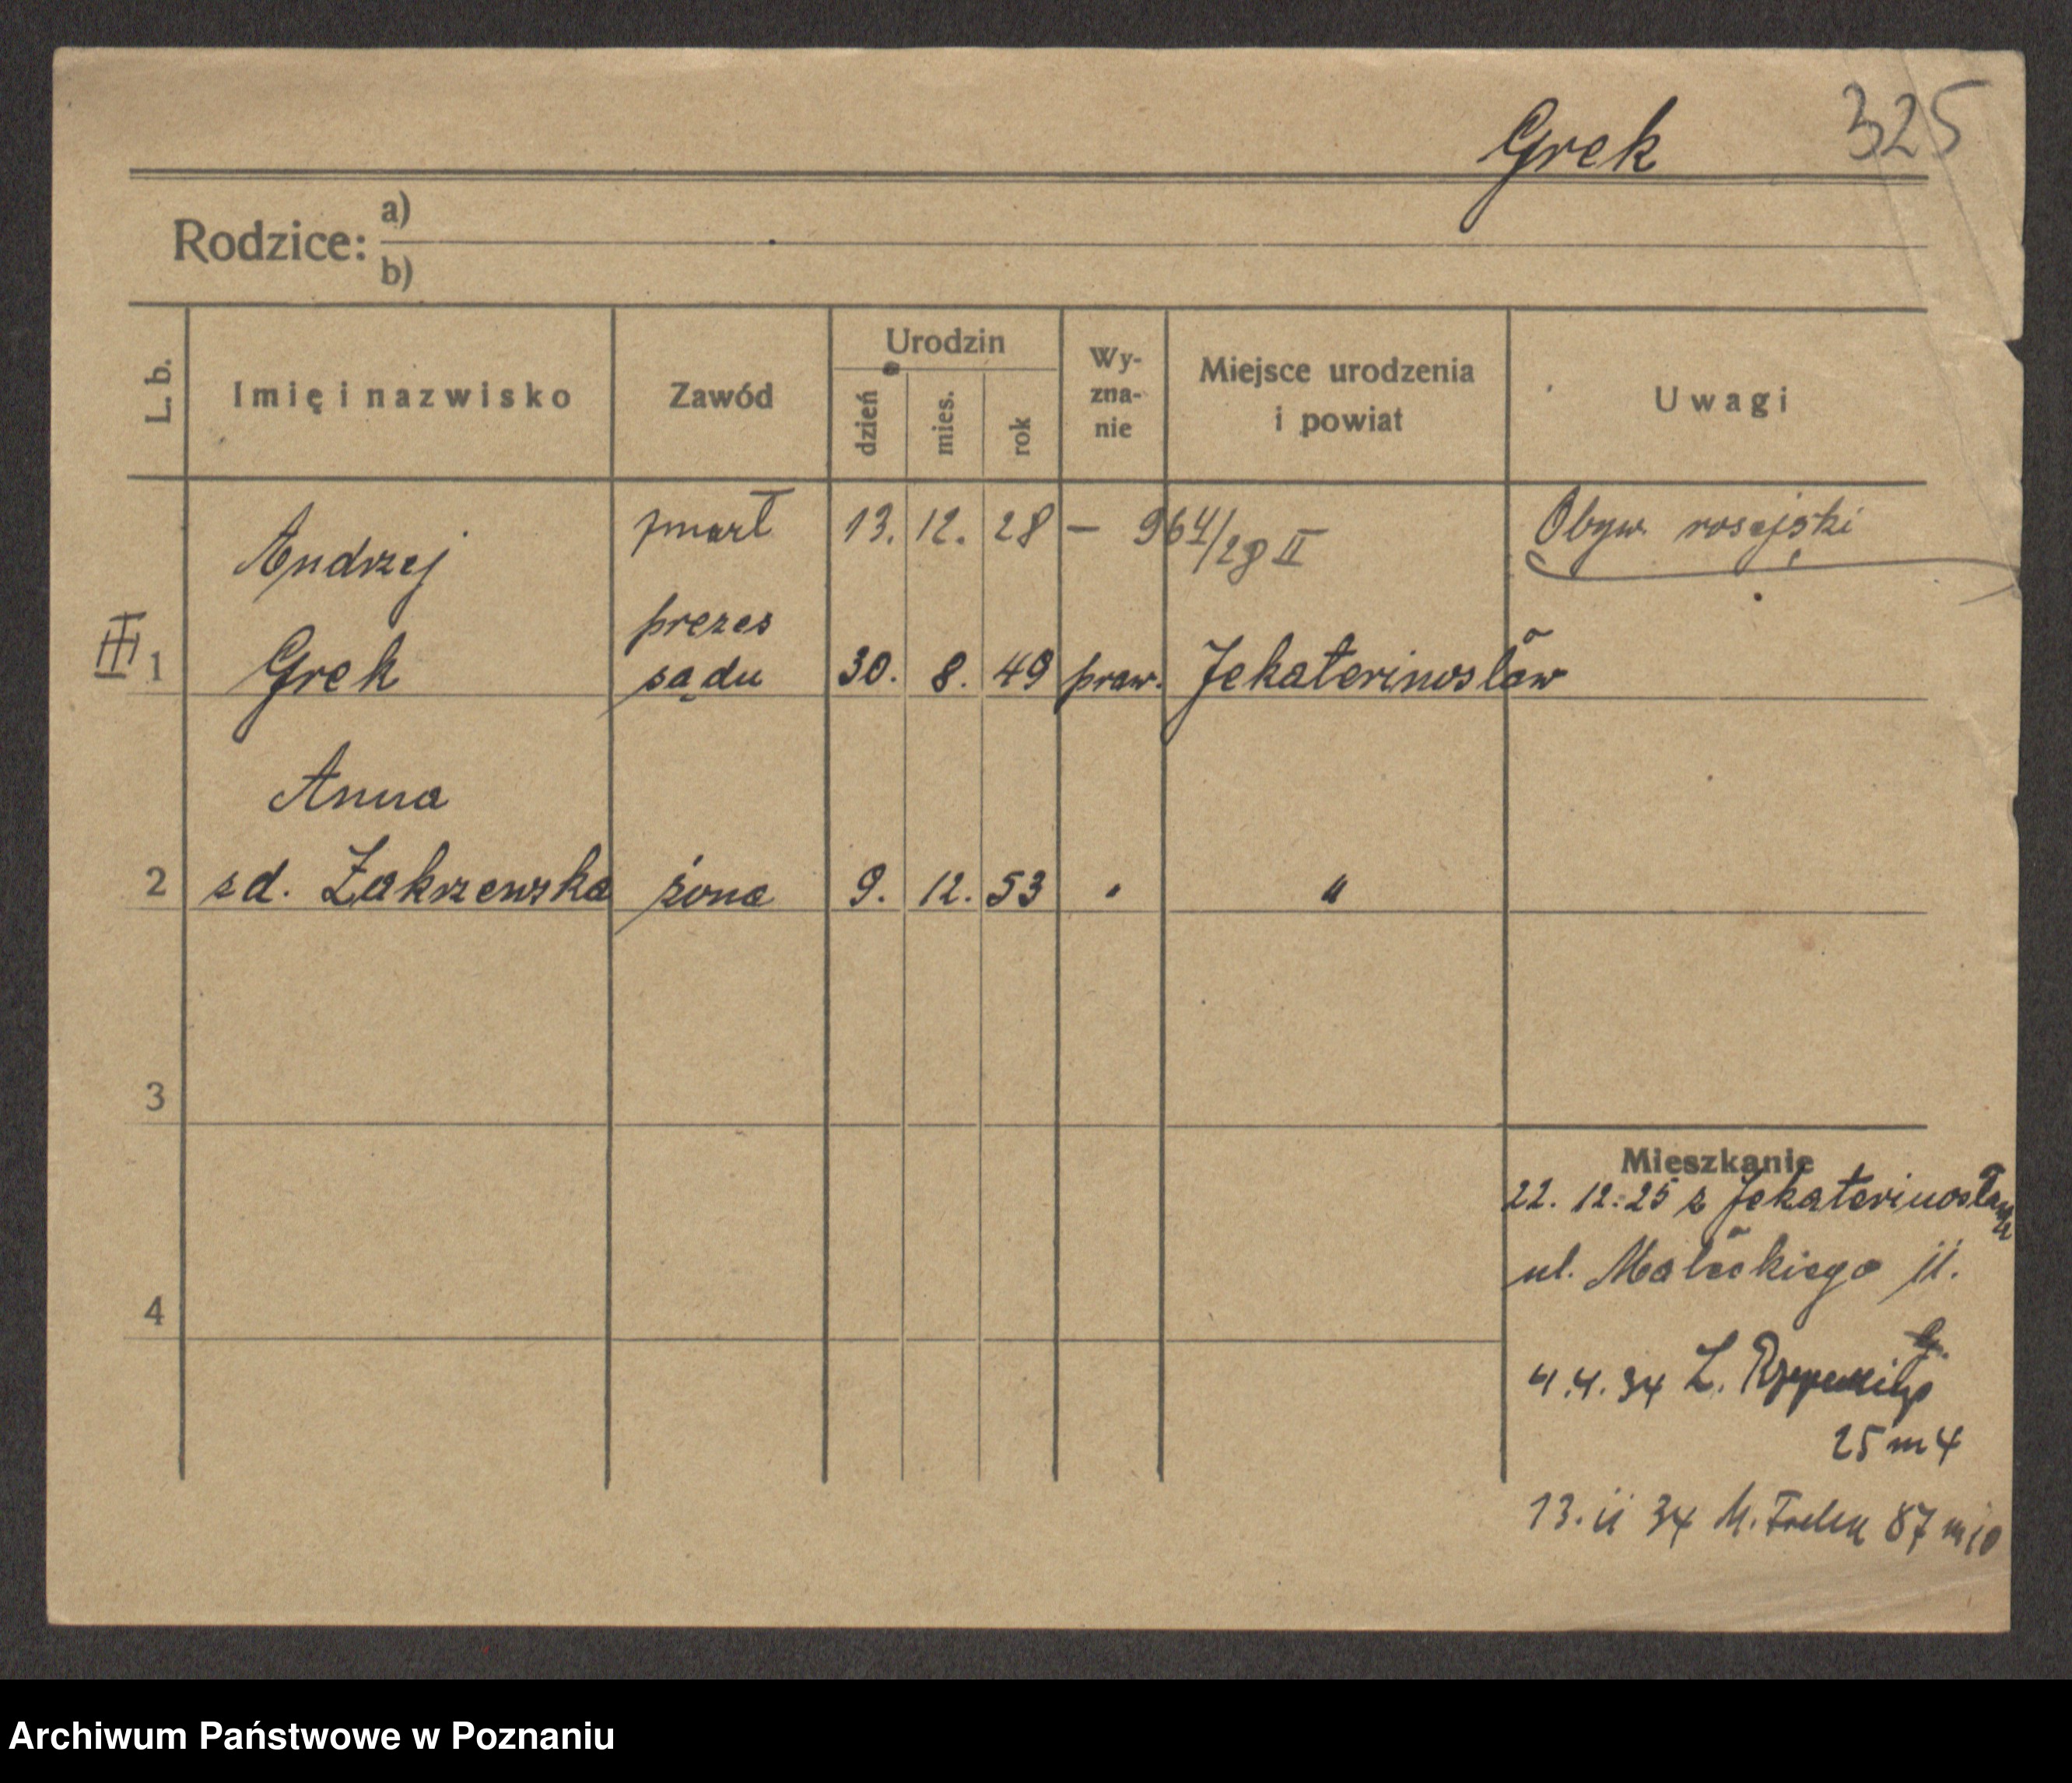 Grek 325
Rodzice: a)
b)
L. b. Imię i nazwisko Zawód Urodzin dzień mies. rok Wy-zna-nie Miejsce urodzenia i powiat Uwagi
Andrzej zmarł 13. 12. 28 – 964/28 II Obyw. rosyjski
prezes
III 1 Grek sądu 30. 8. 49 praw. Jekaterinosław
Anna
2 zd. Zakrzewska żona 9. 12. 53 " "
3
Mieszkanie
22. 12. 25 z Jekaterinosławia
ul. Małeckiego 11.
4
4.4.34 L. Rzepeckiego
25 m 4
13. 11 34 M. Focha 87 m 10
Archiwum Państwowe w Poznaniu